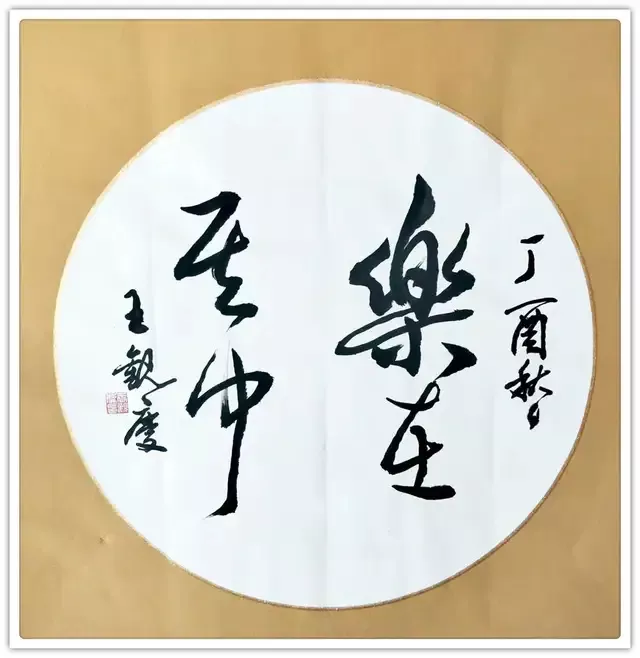 丁酉秋月
樂在
其中
王觀慶